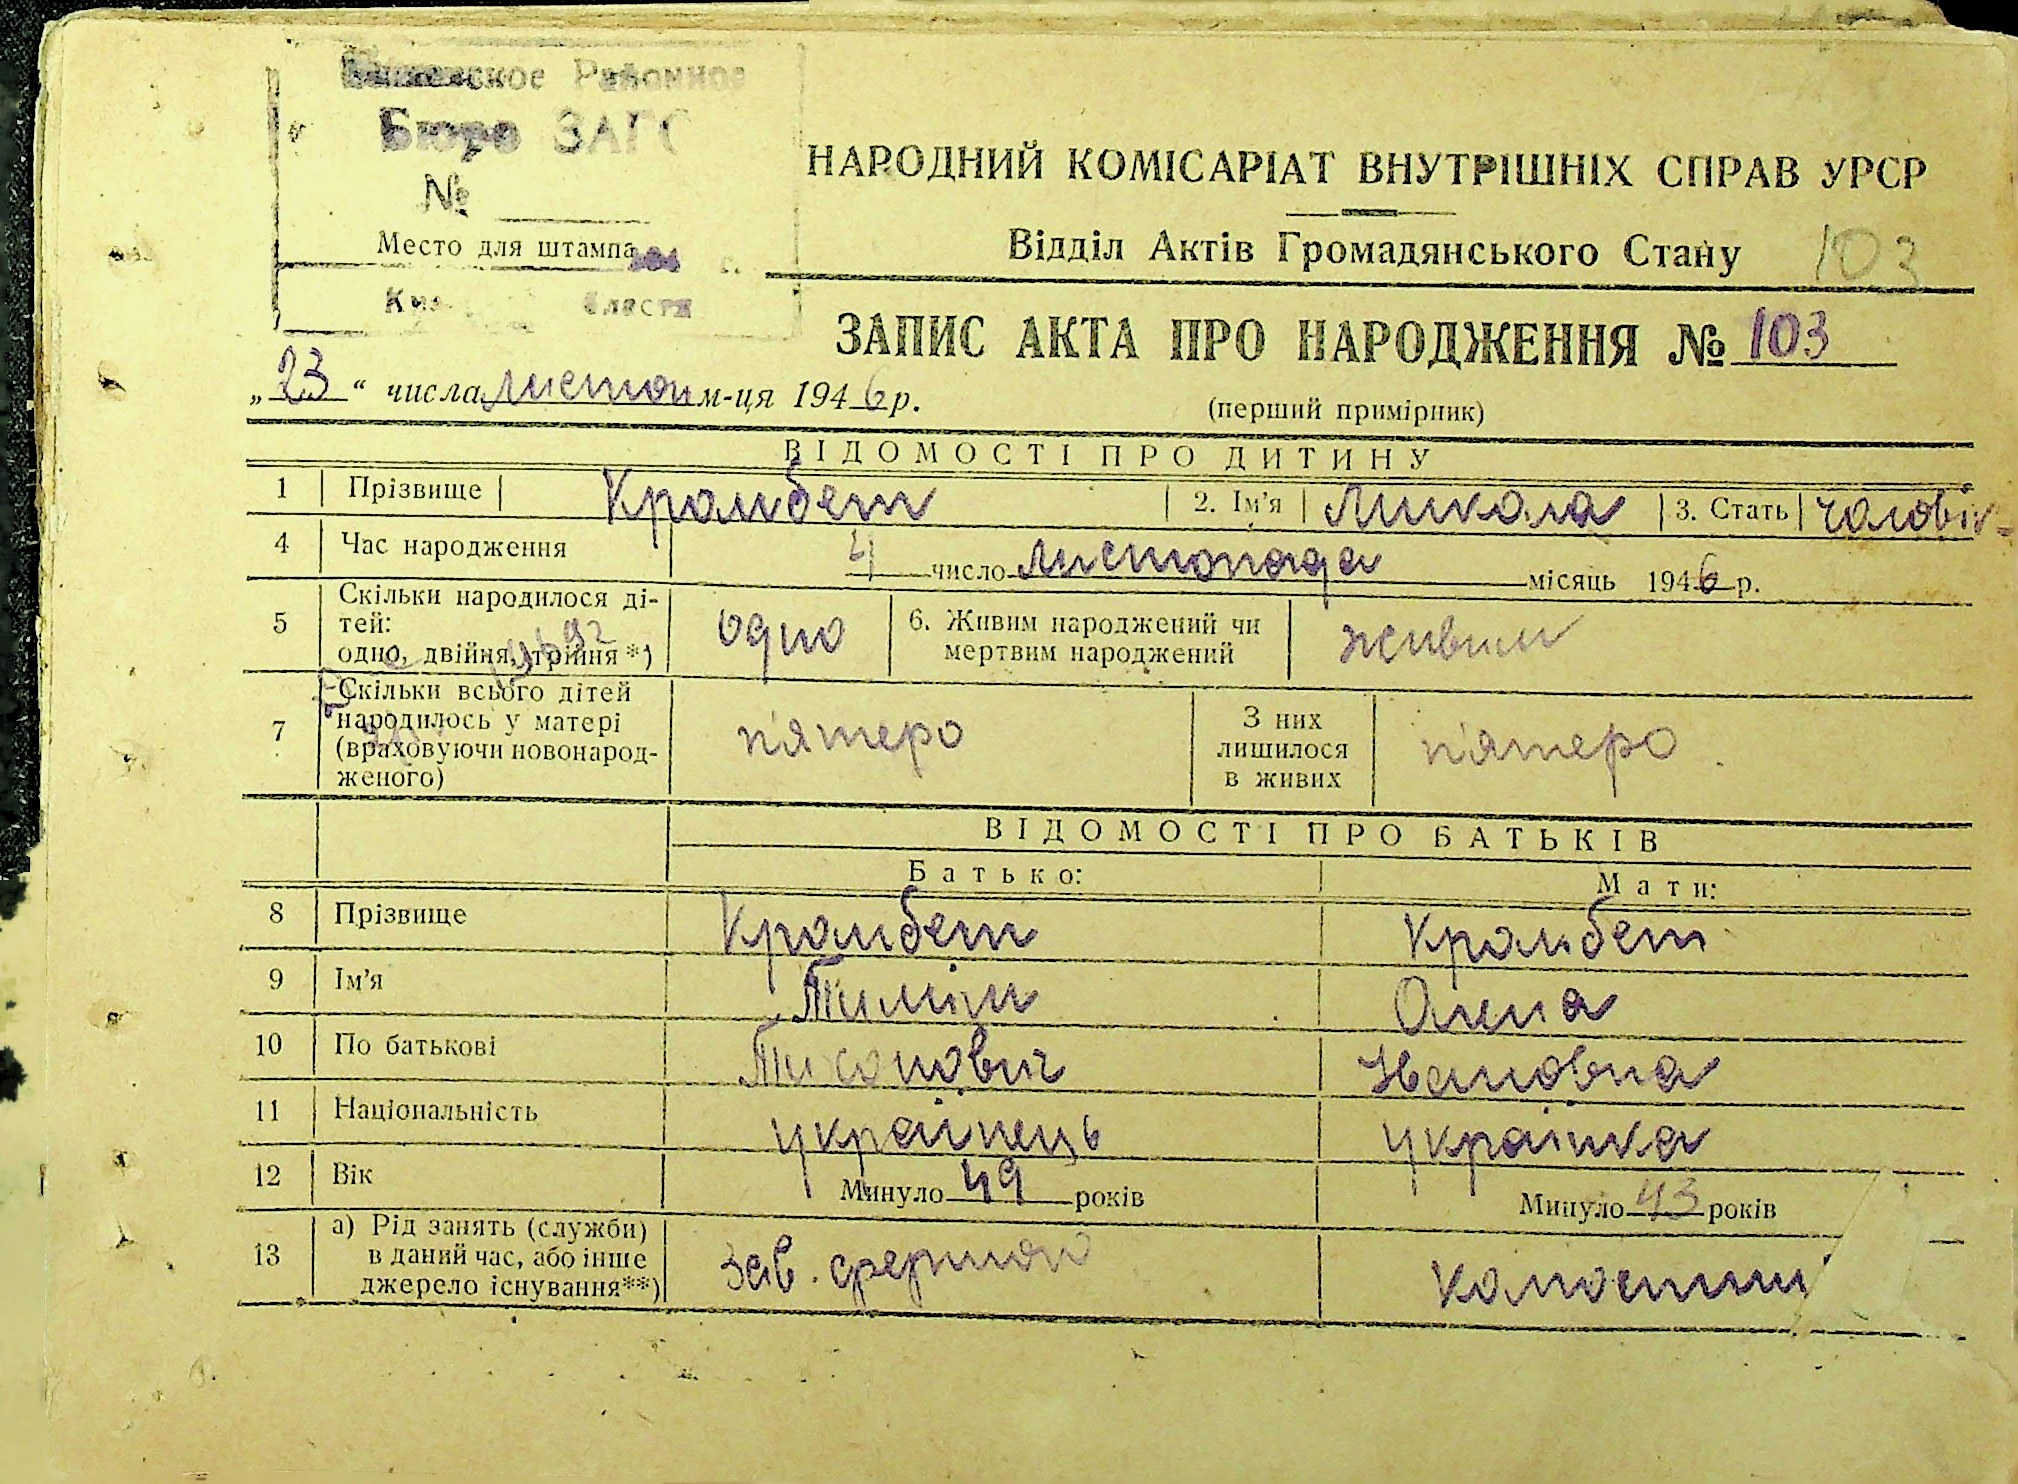 Районное
Бюро ЗАГС
№
Место для штампа
НАРОДНИЙ КОМІСАРІАТ ВНУТРІШНІХ СПРАВ УРСР
Відділ Актів Громадянського Стану 103
ЗАПИС АКТА ПРО НАРОДЖЕННЯ № 103
„23“ числа листоп м-ця 1946 р.
(перший примірник)
ВІДОМОСТІ ПРО ДИТИНУ
1 Прізвище Крамбет 2. Ім'я Микола 3. Стать чоловік
4 Час народження 4 число листопада місяць 1946 р.
5 Скільки народилося ді-
тей:
одно, двійня, трійня*) одно 6. Живим народжений чи
мертвим народжений живим
7 Скільки всього дітей
народилось у матері
(враховуючи новонарод-
женого) п'ятеро З них
лишилося
в живих п'ятеро
ВІДОМОСТІ ПРО БАТЬКІВ
Батько: Мати:
8 Прізвище Крамбет Крамбет
9 Ім'я Пилип Олена
10 По батькові Тихонович Івановна
11 Національність українець українка
12 Вік Минуло 49 років Минуло 43 років
13 а) Рід занять (служби)
в даний час, або інше
джерело існування**) Зав. фермой